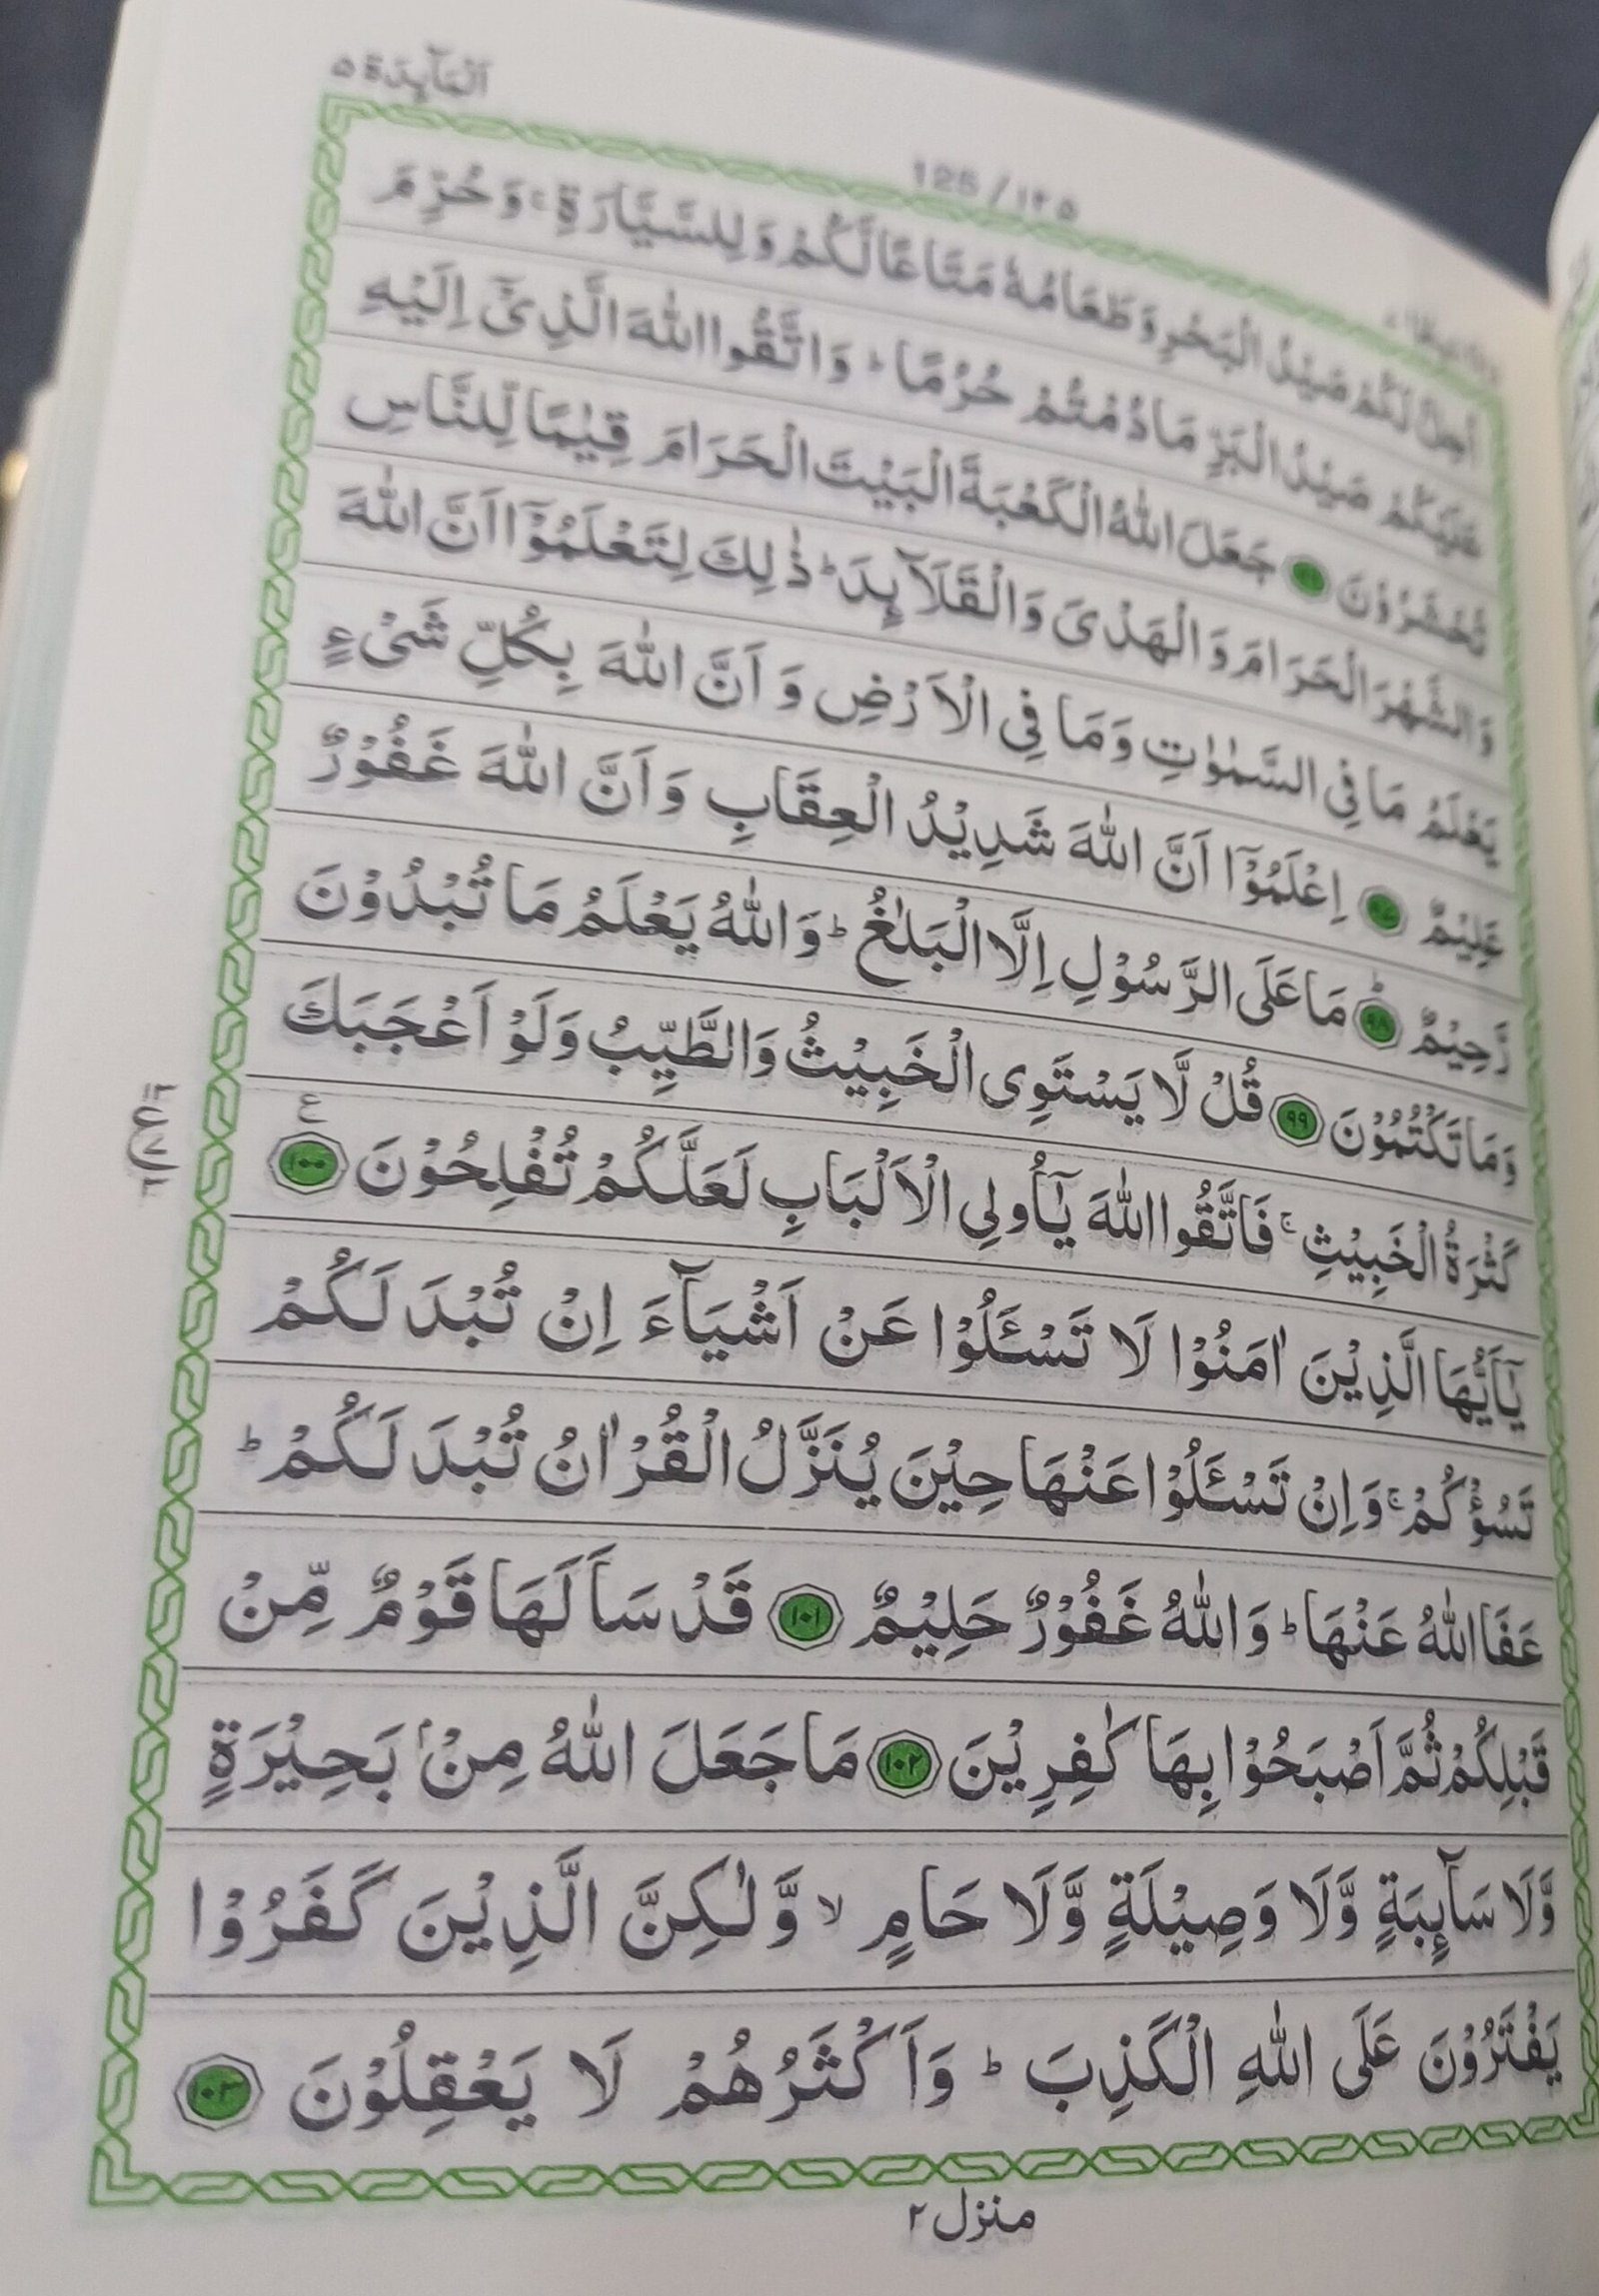 المآىِٕدة ٥
125 / ١٢٥
اُحِلَّ لَكُمْ صَيْدُ الْبَحْرِ وَطَعَامُهٗ مَتَاعًا لَّكُمْ وَلِلسَّيَّارَةِ ۚ وَحُرِّمَ
عَلَيْكُمْ صَيْدُ الْبَرِّ مَا دُمْتُمْ حُرُمًا ؕ وَاتَّقُوا اللّٰهَ الَّذِىْۤ اِلَيْهِ
تُحْشَرُوْنَ ٩٦ جَعَلَ اللّٰهُ الْكَعْبَةَ الْبَيْتَ الْحَرَامَ قِيٰمًا لِّلنَّاسِ
وَالشَّهْرَ الْحَرَامَ وَالْهَدْىَ وَالْقَلَآىِٕدَ ؕ ذٰلِكَ لِتَعْلَمُوْۤا اَنَّ اللّٰهَ
يَعْلَمُ مَا فِى السَّمٰوٰتِ وَمَا فِى الْاَرْضِ وَاَنَّ اللّٰهَ بِكُلِّ شَىْءٍ
عَلِيْمٌ ٩٧ اِعْلَمُوْۤا اَنَّ اللّٰهَ شَدِيْدُ الْعِقَابِ وَاَنَّ اللّٰهَ غَفُوْرٌ
رَّحِيْمٌ ؕ ٩٨ مَا عَلَى الرَّسُوْلِ اِلَّا الْبَلٰغُ ؕ وَاللّٰهُ يَعْلَمُ مَا تُبْدُوْنَ
وَمَا تَكْتُمُوْنَ ٩٩ قُلْ لَّا يَسْتَوِى الْخَبِيْثُ وَالطَّيِّبُ وَلَوْ اَعْجَبَكَ
كَثْرَةُ الْخَبِيْثِ ۚ فَاتَّقُوا اللّٰهَ يٰۤاُولِى الْاَلْبَابِ لَعَلَّكُمْ تُفْلِحُوْنَ ١٠٠ ع
يٰۤاَيُّهَا الَّذِيْنَ اٰمَنُوْا لَا تَسْـَٔلُوْا عَنْ اَشْيَآءَ اِنْ تُبْدَ لَكُمْ
تَسُؤْكُمْ ۚ وَاِنْ تَسْـَٔلُوْا عَنْهَا حِيْنَ يُنَزَّلُ الْقُرْاٰنُ تُبْدَ لَكُمْ ؕ
عَفَا اللّٰهُ عَنْهَا ؕ وَاللّٰهُ غَفُوْرٌ حَلِيْمٌ ١٠١ قَدْ سَاَلَهَا قَوْمٌ مِّنْ
قَبْلِكُمْ ثُمَّ اَصْبَحُوْا بِهَا كٰفِرِيْنَ ١٠٢ مَا جَعَلَ اللّٰهُ مِنْۢ بَحِيْرَةٍ
وَّلَا سَآىِٕبَةٍ وَّلَا وَصِيْلَةٍ وَّلَا حَامٍ ۙ وَّلٰكِنَّ الَّذِيْنَ كَفَرُوْا
يَفْتَرُوْنَ عَلَى اللّٰهِ الْكَذِبَ ؕ وَاَكْثَرُهُمْ لَا يَعْقِلُوْنَ ١٠٣
منزل ٢